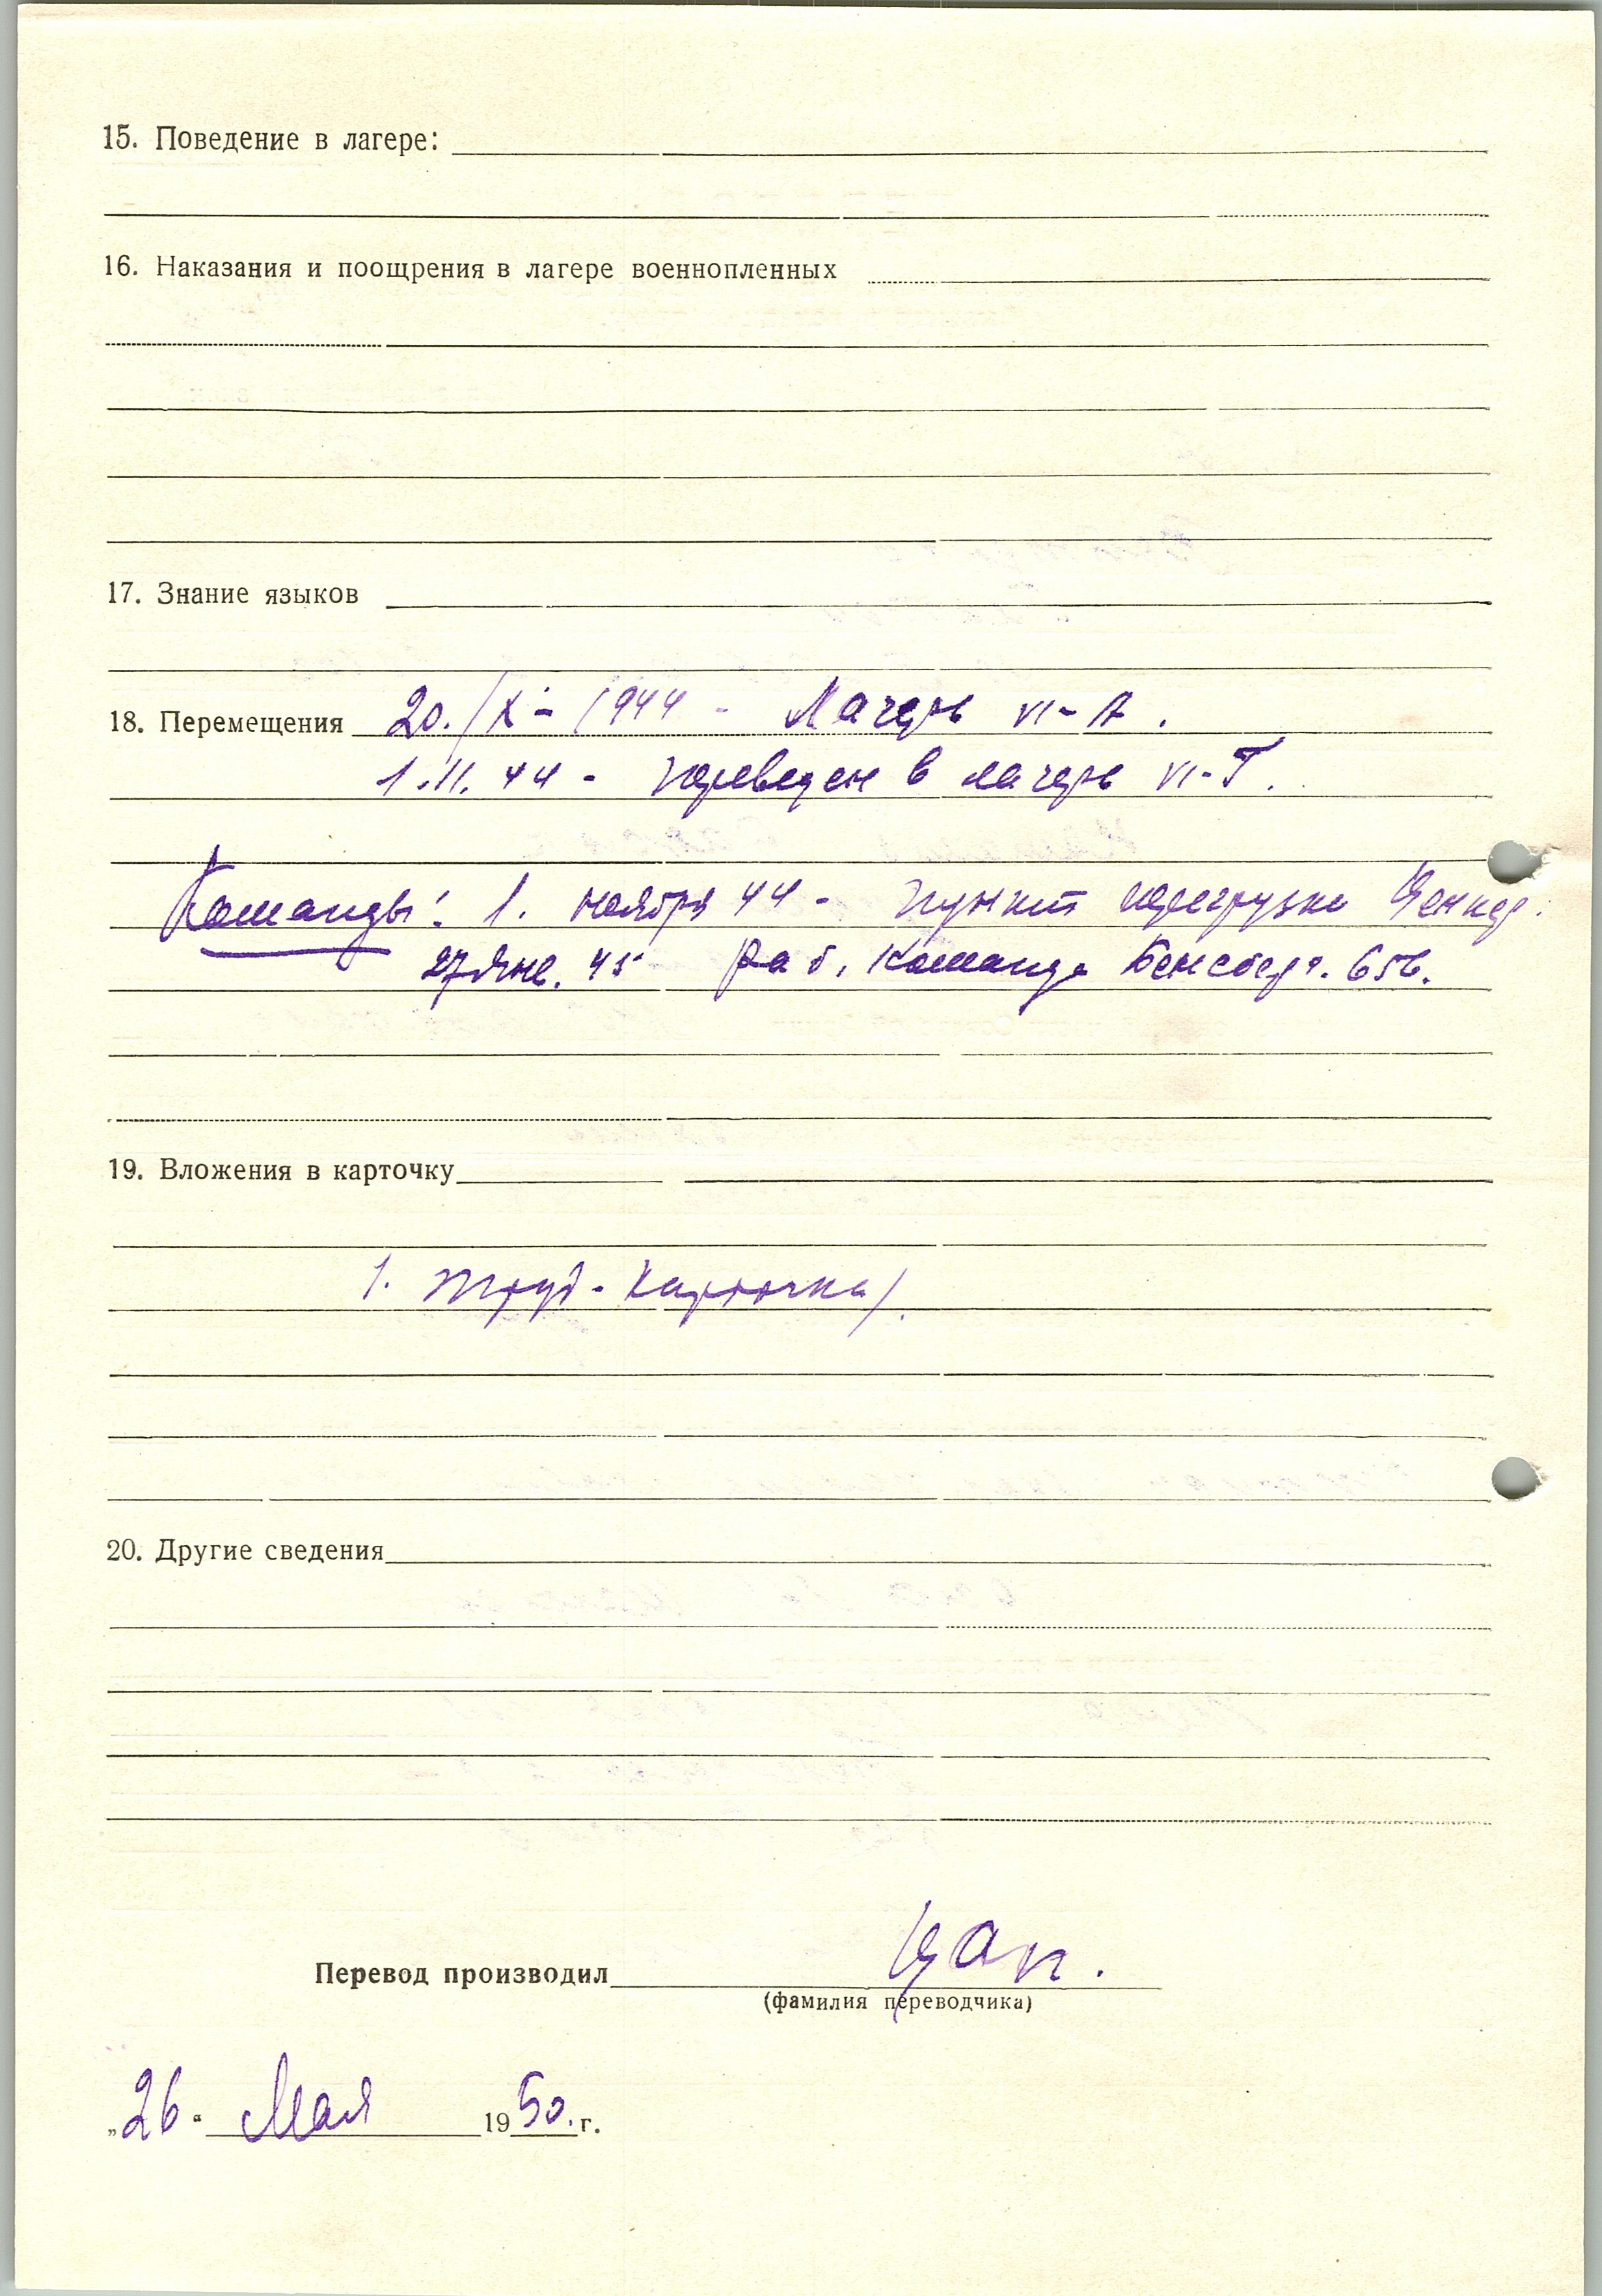 15. Поведение в лагере:
16. Наказания и поощрения в лагере военнопленных
17. Знание языков
18. Перемещения 20./X - 1944 - Лагерь VI-A.
1.11.44 - переведен в лагерь VI-Г.
Команды: 1. ноября 44 - пункт перегрузки
27 Янв. 45 Раб. Команда Бенсберг. 656.
19. Вложения в карточку
1. труд-карточка/.
20. Другие сведения
Перевод производил
(фамилия переводчика)
„26“ Мая 1950. г.